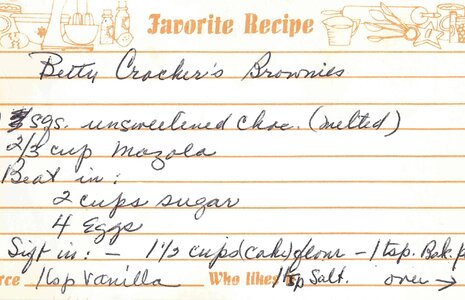 Favorite Recipe
Betty Crocker's Brownies
sqs. unsweetened choc. (melted)
2/3 cup Mazola
Beat in:
2 cups sugar
4 Eggs
Sift in: - 1 1/2 cups (cake) flour - 1 tsp. Bak. p
rce 1 tsp vanilla Who likes 1 tsp Salt. over →